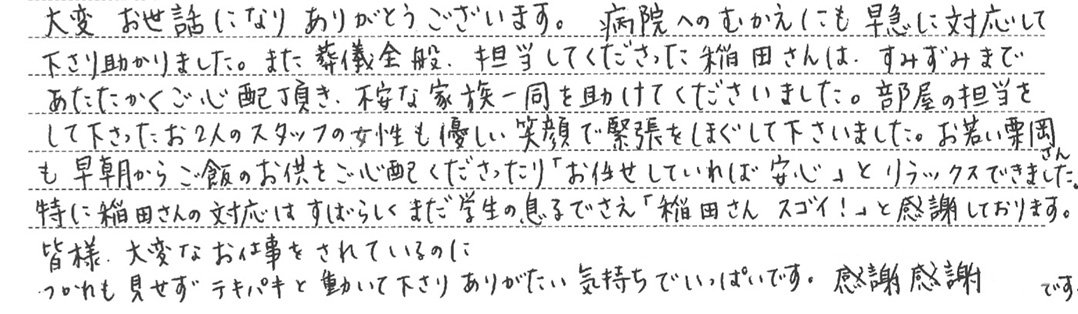 大変 お世話になり ありがとうございます。 病院へのむかえにも早急に対応して
下さり助かりました。また葬儀全般、担当してくださった稲田さんは、すみずみまで
あたたかくご心配頂き、不安な家族一同を助けてくださいました。部屋の担当を
して下さったお2人のスタッフの女性も優しい笑顔で緊張をほぐして下さいました。お若い栗岡さん
も早朝からご飯のお供をご心配くださったり「お任せしていれば安心」とリラックスできました。
特に稲田さんの対応はすばらしくまだ学生の息子でさえ「稲田さん スゴイ!」と感謝しております。
皆様、大変なお仕事をされているのに
つかれも見せずテキパキと動いて下さりありがたい気持ちでいっぱいです。感謝感謝 です